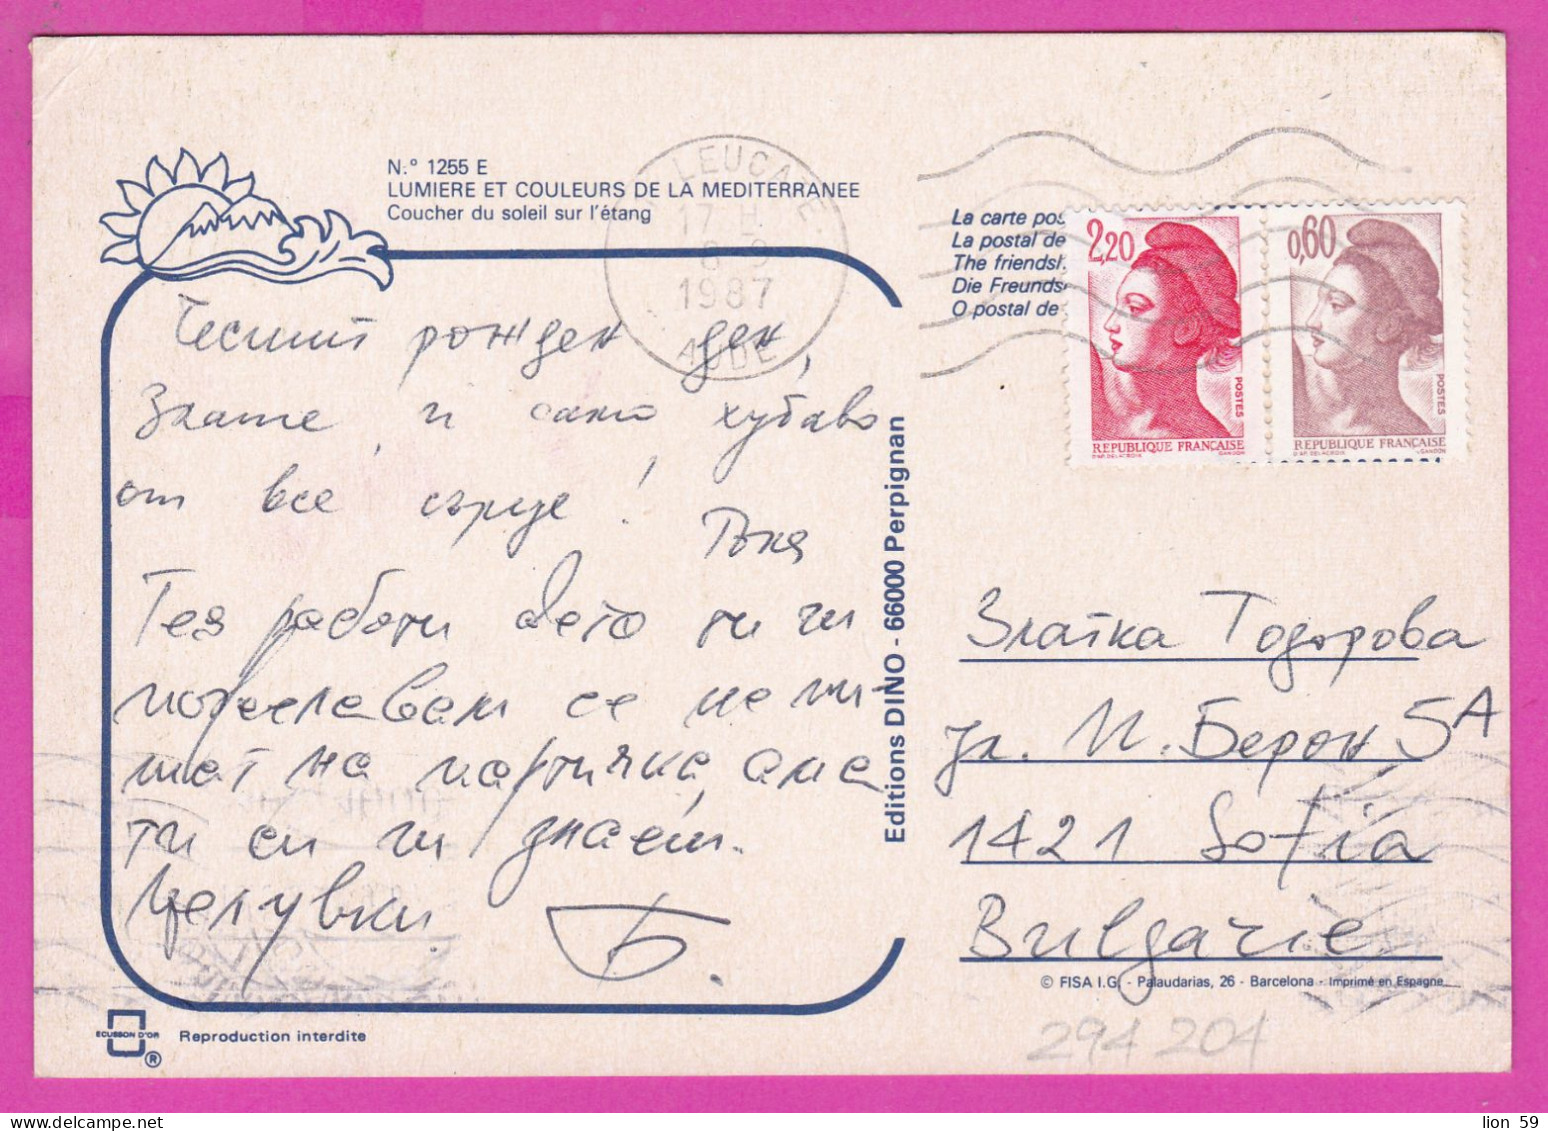 N.° 1255 E
LUMIERE ET COULEURS DE LA MEDITERRANEE
Coucher du soleil sur l'étang
LEUCATE
17 H
8-9
1987
AUDE
La carte pos
La postal de
The friendsh
Die Freunds
O postal de
2,20
POSTES
REPUBLIQUE FRANÇAISE
D'AP. DELACROIX GANDON
0,60
POSTES
REPUBLIQUE FRANÇAISE
D'AP. DELACROIX GANDON
Честит рожден ден,
Злате, и само хубаво
от все сърце!
Тоня
Тея работи дето ти ги
пожелавам се не пи-
шат на картичка, ама
ти си ги знаеш.
Целувки
Б.
Editions DINO - 66000 Perpignan
Златка Тодорова
ул. П. Берон 5А
1421 Sofia
Bulgarie
© FISA I.G. - Palaudarias, 26 - Barcelona - Imprimé en Espagne
ECUSSON D'OR
®
Reproduction interdite
294 204
lion 59